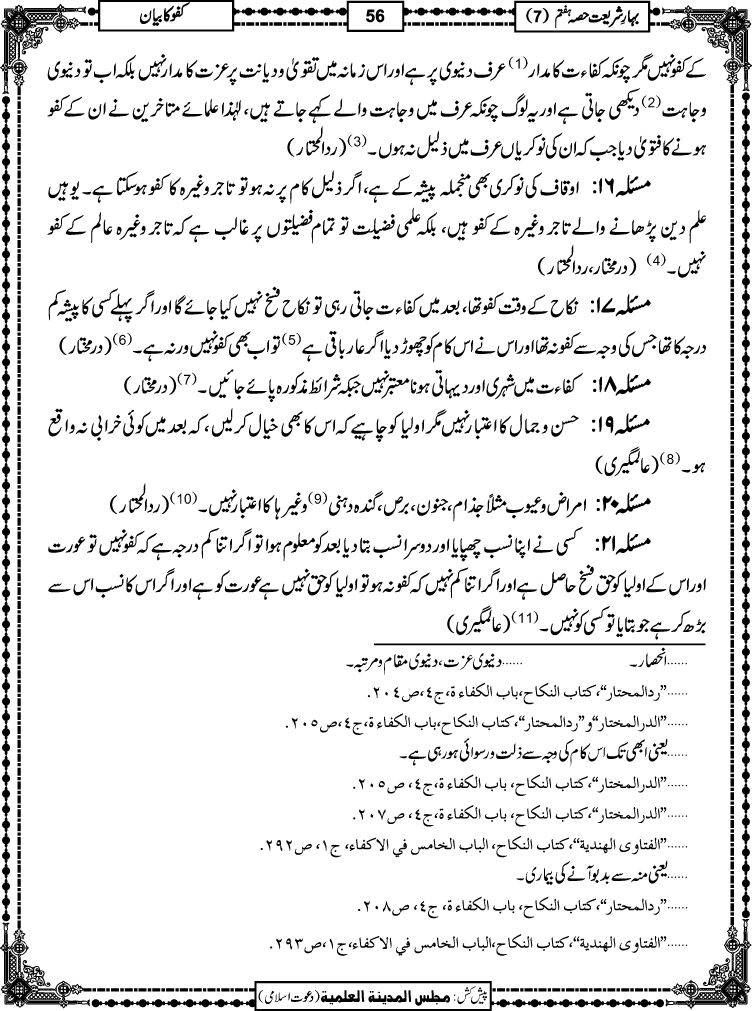 بہارِ شریعت حصہ ہفتم (7)
56
کفو کا بیان
کے کفو نہیں مگر چونکہ کفاءت کا مدار (1) عرف دنیوی پر ہے اور اس زمانہ میں تقویٰ و دیانت پر عزت کا مدار نہیں بلکہ اب تو دنیوی
وجاہت (2) دیکھی جاتی ہے اور یہ لوگ چونکہ عرف میں وجاہت والے کہے جاتے ہیں، لہٰذا علمائے متاخرین نے ان کے کفو
ہونے کا فتویٰ دیا جب کہ ان کی نوکریاں عرف میں ذلیل نہ ہوں۔ (3) (ردالمحتار)
مسئلہ ۱۶: اوقاف کی نوکری بھی منجملہ پیشہ کے ہے، اگر ذلیل کام پر نہ ہو تو تاجر وغیرہ کا کفو ہو سکتا ہے۔ یوہیں
علم دین پڑھانے والے تاجر وغیرہ کے کفو ہیں، بلکہ علمی فضیلت تو تمام فضیلتوں پر غالب ہے کہ تاجر وغیرہ عالم کے کفو
نہیں۔ (4) (درمختار، ردالمحتار)
مسئلہ ۱۷: نکاح کے وقت کفو تھا، بعد میں کفاءت جاتی رہی تو نکاح فسخ نہیں کیا جائے گا اور اگر پہلے کسی کا پیشہ کم
درجہ کا تھا جس کی وجہ سے کفو نہ تھا اور اس نے اس کام کو چھوڑ دیا اگر عار باقی ہے (5) تو اب بھی کفو نہیں ورنہ ہے۔ (6) (درمختار)
مسئلہ ۱۸: کفاءت میں شہری اور دیہاتی ہونا معتبر نہیں جبکہ شرائط مذکورہ پائے جائیں۔ (7) (درمختار)
مسئلہ ۱۹: حسن و جمال کا اعتبار نہیں مگر اولیا کو چاہیے کہ اس کا بھی خیال کرلیں، کہ بعد میں کوئی خرابی نہ واقع
ہو۔ (8) (عالمگیری)
مسئلہ ۲۰: امراض و عیوب مثلاً جذام، جنون، برص، گندہ دہنی (9) وغیرہا کا اعتبار نہیں۔ (10) (ردالمحتار)
مسئلہ ۲۱: کسی نے اپنا نسب چھپایا اور دوسرا نسب بتا دیا بعد کو معلوم ہوا تو اگر اتنا کم درجہ ہے کہ کفو نہیں تو عورت
اور اس کے اولیا کو حق فسخ حاصل ہے اور اگر اتنا کم نہیں کہ کفو نہ ہو تو اولیا کو حق نہیں ہے عورت کو ہے اور اگر اس کا نسب اس سے
بڑھ کر ہے جو بتایا تو کسی کو نہیں۔ (11) (عالمگیری)
......انحصار۔ ......دنیوی عزت، دنیوی مقام و مرتبہ۔
......”ردالمحتار“، کتاب النکاح، باب الکفاءة، ج٤، ص٢٠٤.
......”الدرالمختار“و”ردالمحتار“، کتاب النکاح، باب الکفاءة، ج٤، ص٢٠٥.
......یعنی ابھی تک اس کام کی وجہ سے ذلت و رسوائی ہو رہی ہے۔
......”الدرالمختار“، کتاب النکاح، باب الکفاءة، ج٤، ص٢٠٥.
......”الدرالمختار“، کتاب النکاح، باب الکفاءة، ج٤، ص٢٠٧.
......”الفتاوی الهندیة“، کتاب النکاح، الباب الخامس في الاکفاء، ج١، ص٢٩٢.
......یعنی منہ سے بدبو آنے کی بیماری۔
......”ردالمحتار“، کتاب النکاح، باب الکفاءة، ج٤، ص٢٠٨.
......”الفتاوی الهندیة“، کتاب النکاح، الباب الخامس في الاکفاء، ج١، ص٢٩٣.
پیش کش: مجلس المدینة العلمیة (دعوت اسلامی)